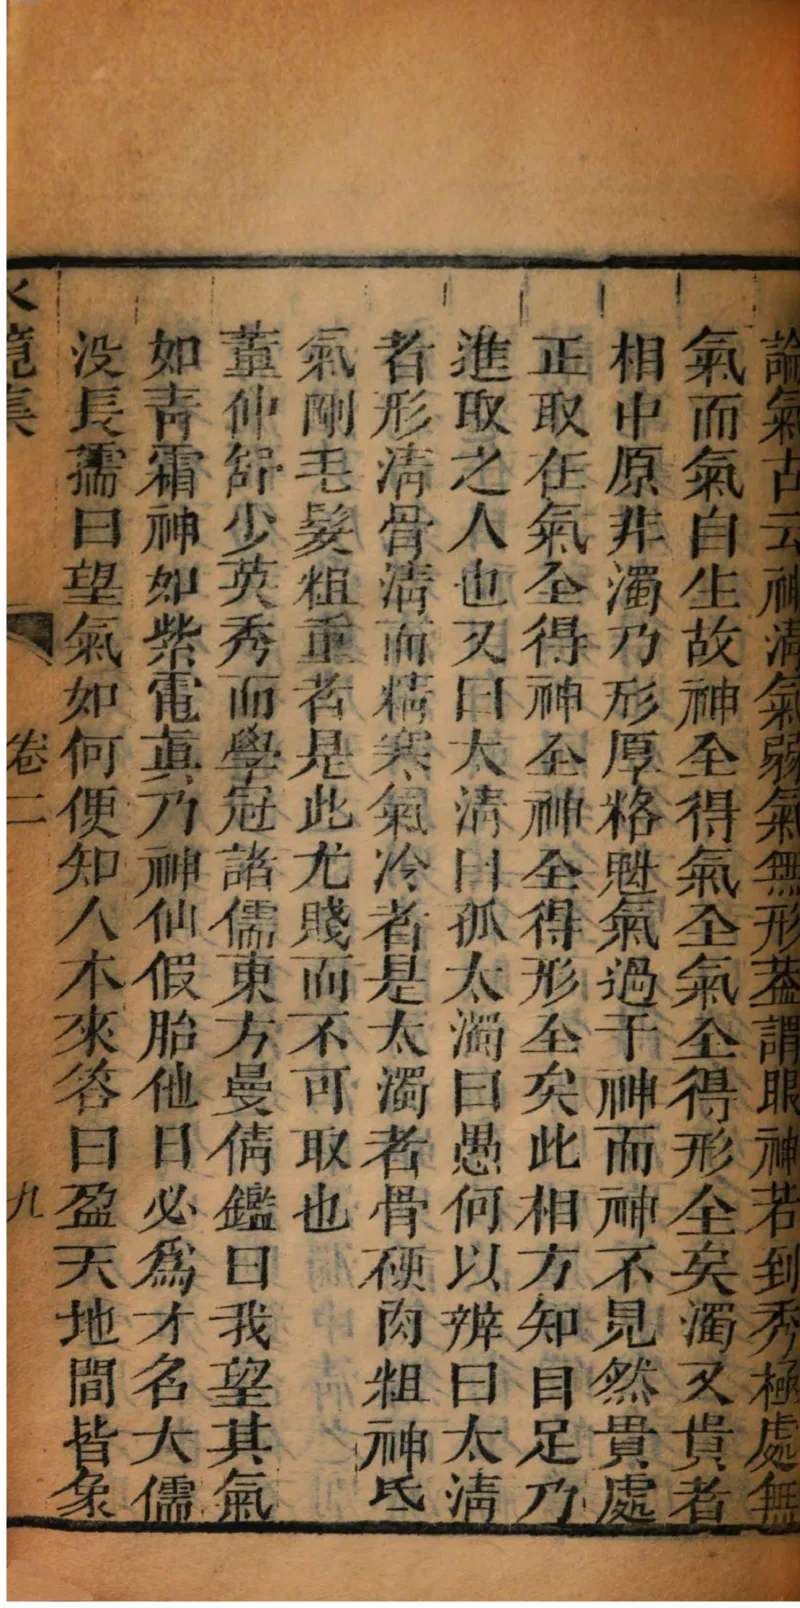 論氣古云神淸氣弱氣無形葢謂眼神若到秀極處無
氣而氣自生故神全得氣全氣全得形全矣濁又貴者
相中原非濁乃形厚格魁氣過于神而神不見然貴處
正取在氣全得神全神全得形全矣此相方知目足乃
進取之人也又曰太淸曰孤太濁曰愚何以辨曰太淸
者形淸骨淸而精寒氣冷者是太濁者骨硬肉粗神氏
氣剛毛髮粗重者是此尤賤而不可取也
董仲舒少英秀而學冠諸儒東方曼倩鑑曰我望其氣
如靑霜神如紫電眞乃神仙假胎他日必爲才名大儒
没長孺曰望氣如何便知人本來答曰盈天地間皆象
水鏡集
卷二
九